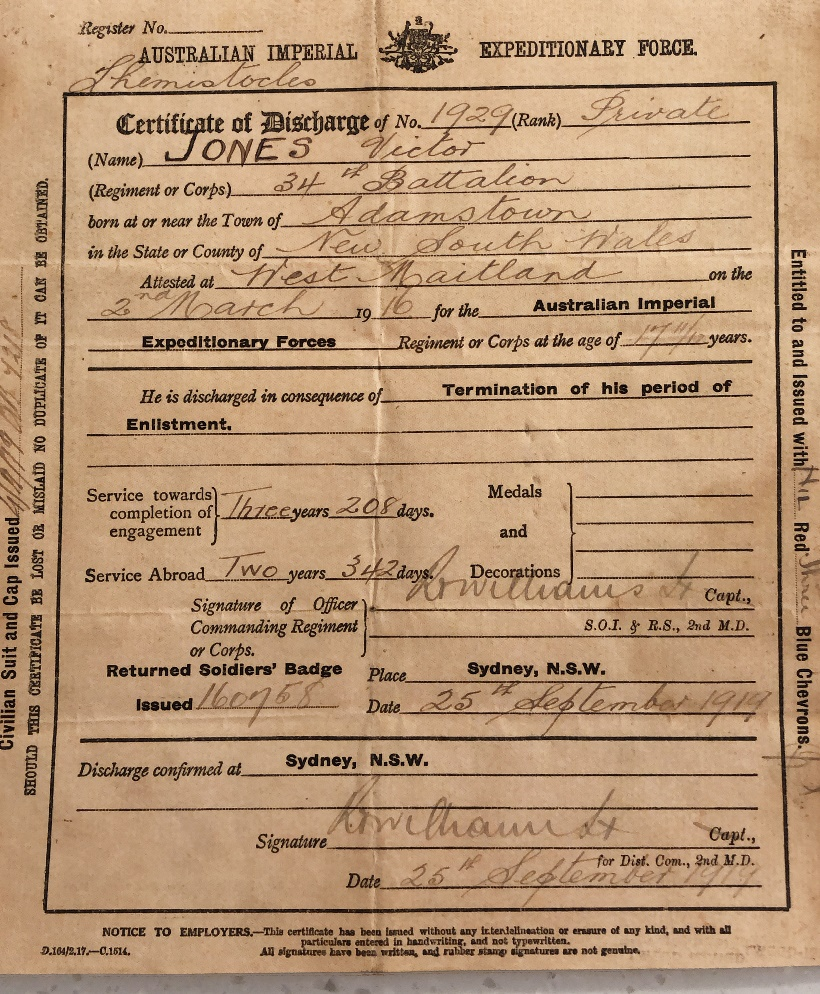 Register No.
AUSTRALIAN IMPERIAL EXPEDITIONARY FORCE.
Themistocles
Certificate of Discharge of No. 1929 (Rank) Private
(Name) JONES Victor
(Regiment or Corps) 34th Battalion
born at or near the Town of Adamstown
in the State or County of New South Wales
Attested at West Maitland on the
2nd March 1916 for the Australian Imperial
Expeditionary Forces Regiment or Corps at the age of 17 11/12 years.
He is discharged in consequence of Termination of his period of
Enlistment.
Service towards completion of engagement } Three years 208 days.
Medals and Decorations }
Service Abroad Two years 342 days.
Signature of Officer Commanding Regiment or Corps. } Williams Lt Capt.,
S.O.I. & R.S., 2nd M.D.
Returned Soldiers' Badge
Issued 160758
Place Sydney, N.S.W.
Date 25th September 1919
Discharge confirmed at Sydney, N.S.W.
Signature Williams Lt Capt.,
for Dist. Com., 2nd M.D.
Date 25th September 1919
NOTICE TO EMPLOYERS.—This certificate has been issued without any interlineation or erasure of any kind, and with all
particulars entered in handwriting, and not typewritten.
All signatures have been written, and rubber stamp signatures are not genuine.
D.164/2.17.—C.1514.
Civilian Suit and Cap Issued
SHOULD THIS CERTIFICATE BE LOST OR MISLAID NO DUPLICATE OF IT CAN BE OBTAINED.
Entitled to and Issued with Nil Red Three Blue Chevrons.